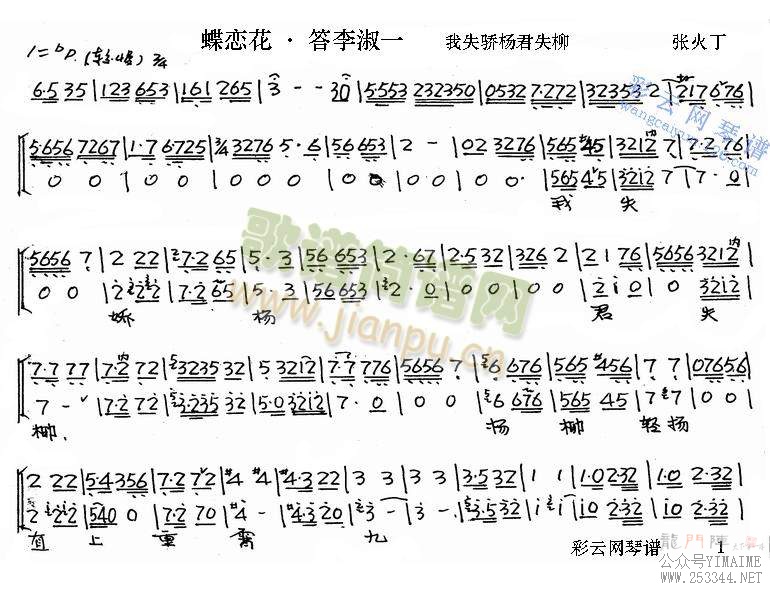 蝶恋花 · 答李淑一 我失骄杨君失柳 张火丁
6·5 35 | 123 653 | 161 265 | 3 - - 30 | 5·553 232350 | 0532 7·272 | 32353 2 | 217676
5·656 7267 | 1·7 6·725 | 3/4 3276 5·6 | 56 653 | 2 - | 02 3276 | 565 #45 | 3212 7 | 7·2 76
0 0 | 0 0 | 0 0 0 | 0 0 | 0 0 | 0 0 | 565 4 5 | 3212 7 | 7·0
我 失
5656 7 | 2 22 | 7·2 65 | 5·3 | 56 653 | 2·67 | 2·5 32 | 326 2 | 21 76 | 5656 3212
0 0 | 2 22 | 7·2 65 | 5·3 | 56 653 | 2·0 | 0 0 | 0 0 | 2 1 0 | 0 3212
娇 杨 君 失
7·7 77 | 7·2 72 | 3235 32 | 5 3212 | 7·7 776 | 5656 7 | 6 676 | 565 #456 | 7 7 | 07656
7 - | 7·2 72 | 3·235 32 | 5·03212 | 7·0 | 0 0 | 6 676 | 565 45 | 7 7 | 0 0
柳. 杨 柳 轻扬
2 22 | 5·4356 | 7·2 72 | #4 #4 | #4·3 22 | 3 3 | 3 3 | 3·5 32 | 1 1 | 1·0 2·32 | 1·0 2·32
2 22 | 540 0 | 7·2 70 | #4 - | #4·3 20 | 3 - | 3 - | 3·5 32 | 1 1 | 1·0 2·32 | 1·0 2·32
直 上 重 霄 九
彩云网琴谱 1
彩云网琴谱
歌谱简谱网
www.jianpu.cn
龍門陣
公众号YIMAIME
www.253344.NET